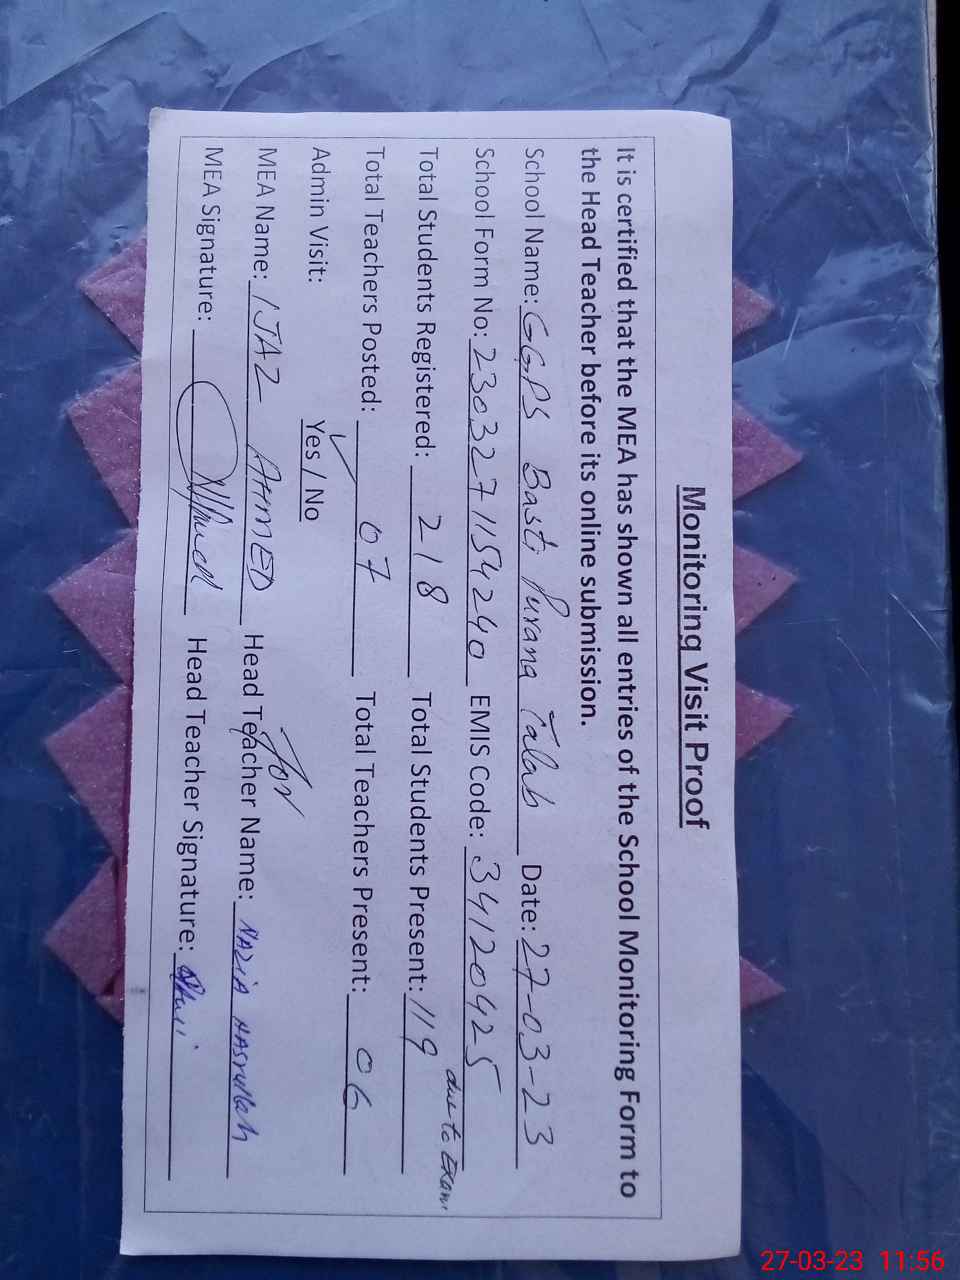 Monitoring Visit Proof
It is certified that the MEA has shown all entries of the School Monitoring Form to
the Head Teacher before its online submission.
School Name: GGPS Basti Purana Talab Date: 27-03-23
School Form No: 2303271154240 EMIS Code: 34120425
Total Students Registered: 218 Total Students Present: 119 due to Exam
Total Teachers Posted: 07 Total Teachers Present: 06
Admin Visit: Yes / No
for
MEA Name: IJAZ AHMED Head Teacher Name: NAZIA NASrullah
MEA Signature: Head Teacher Signature:
27-03-23 11:56